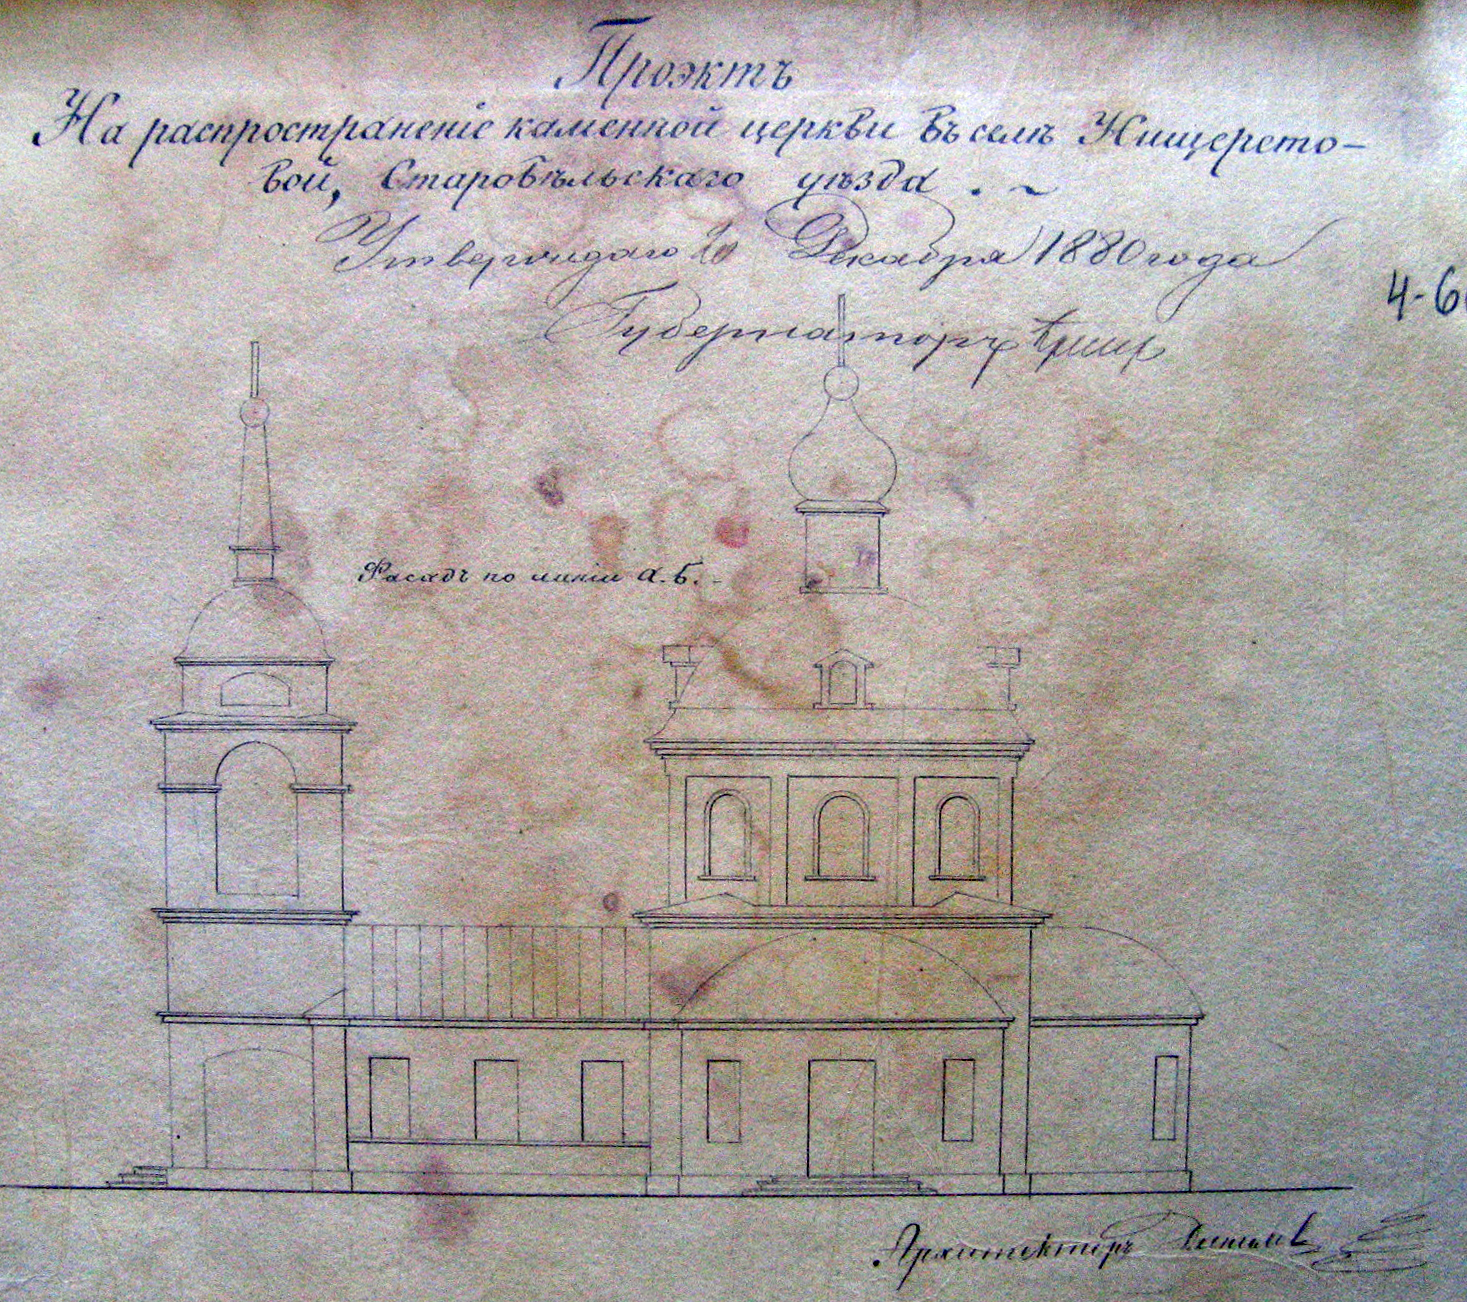 Проэктъ
На распространеніе каменной церкви въ селѣ Нищерето-
вой, Старобѣльскаго уѣзда.
Утверждаю 20 Декабря 1880 года
Губернаторъ
4-6
Фасадъ по линіи а.б.
Архитекторъ